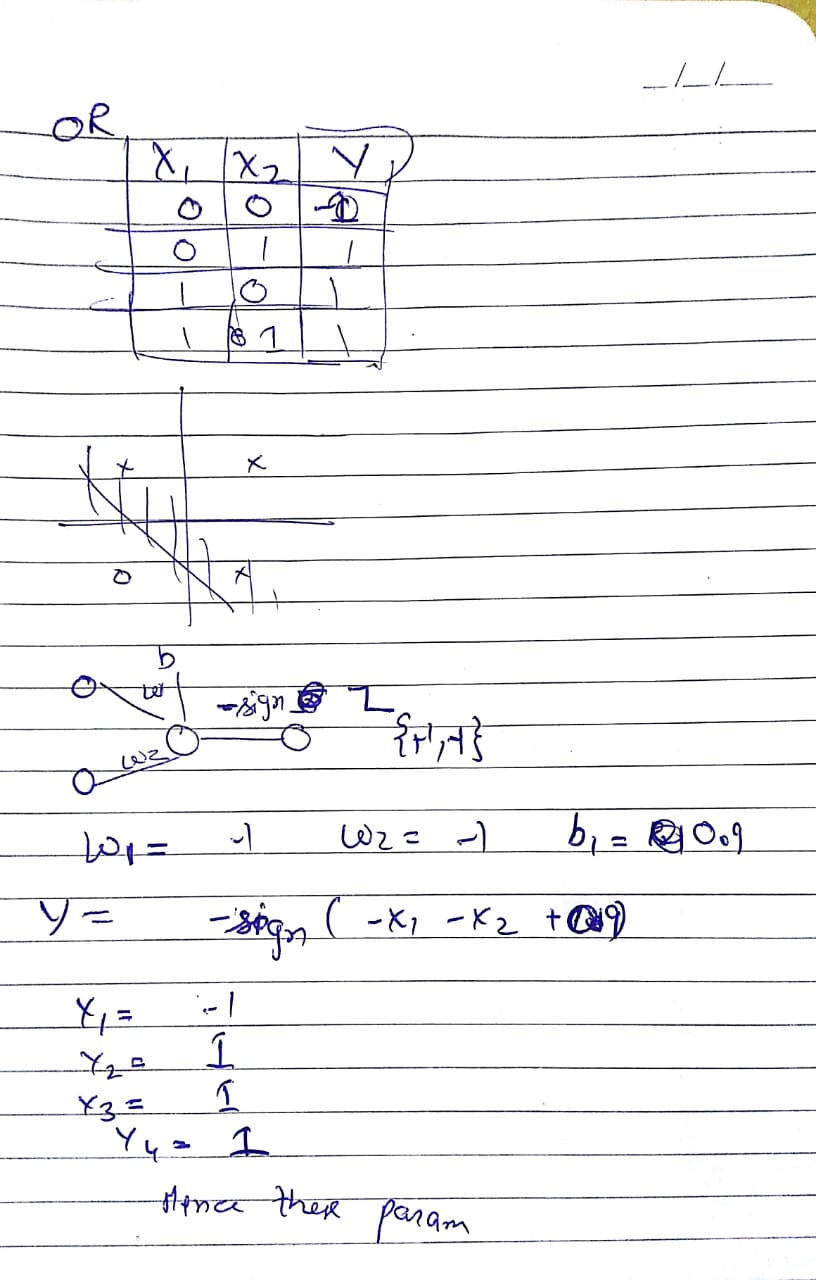 _/_/__
OR
X1 X2 Y
0 0 -1
0 1 1
1 0 1
1 1 1
x x
0 x
b
w1 -sign Z
w2 {+1,-1}
W1 = -1 W2 = -1 b1 = 0.9
Y = -sign ( -X1 -X2 + 0.9)
Y1 = -1
Y2 = 1
Y3 = 1
Y4 = 1
Hence these param